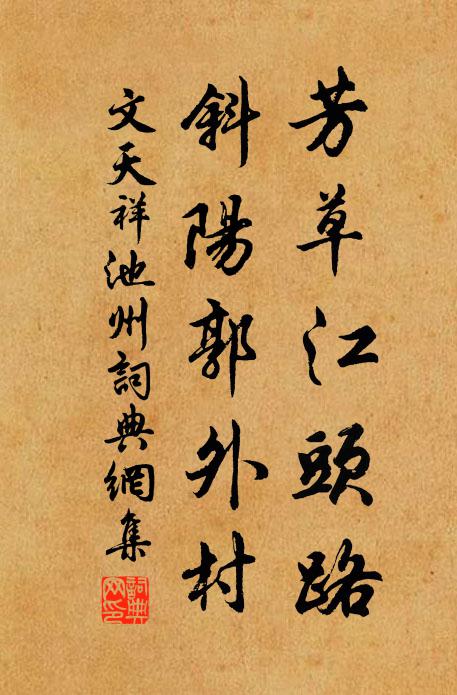 芳草江頭路
斜陽郭外村
文天祥池州詞典網集
詞典網印